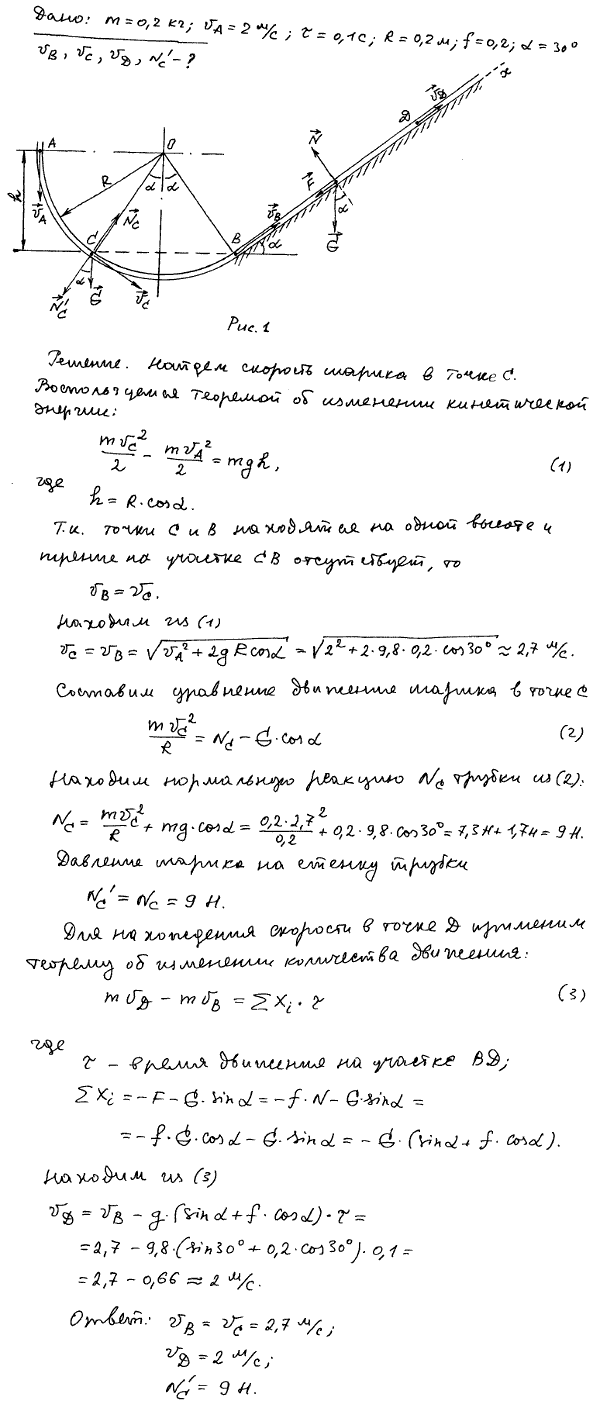 Дано: m=0,2 кг; v_A=2 м/с; τ=0,1с; R=0,2м; f=0,2; α=30°
v_B, v_C, v_D, N_C' - ?
A
O
D
v_D
x
N
h
R
α
α
F
v_A
N_C
v_B
α
C
B
α
G
α
N_C'
G
v_C
Рис. 1
Решение. Найдем скорость шарика в точке C.
Воспользуемся теоремой об изменении кинетической
энергии:
mv_C²/2 - mv_A²/2 = mgh, (1)
где
h = R·cosα.
Т.к. точки C и B находятся на одной высоте и
трение на участке CB отсутствует, то
v_B = v_C.
Находим из (1)
v_C = v_B = √(v_A² + 2gRcosα) = √(2² + 2·9,8·0,2·cos30°) ≈ 2,7 м/с.
Составим уравнение движения шарика в точке C
mv_C²/R = N_C - G·cosα (2)
Находим нормальную реакцию N_C трубки из (2):
N_C = mv_C²/R + mg·cosα = 0,2·2,7²/0,2 + 0,2·9,8·cos30° = 7,3Н + 1,7Н = 9 Н.
Давление шарика на стенку трубки
N_C' = N_C = 9 Н.
Для нахождения скорости в точке D применим
теорему об изменении количества движения:
mv_D - mv_B = ΣX_i·τ (3)
где
τ - время движения на участке BD;
ΣX_i = -F - G·sinα = -f·N - G·sinα =
= -f·G·cosα - G·sinα = -G·(sinα + f·cosα).
Находим из (3)
v_D = v_B - g·(sinα + f·cosα)·τ =
= 2,7 - 9,8·(sin30° + 0,2·cos30°)·0,1 =
= 2,7 - 0,66 ≈ 2 м/с.
Ответ: v_B = v_C = 2,7 м/с;
v_D = 2 м/с;
N_C' = 9 Н.